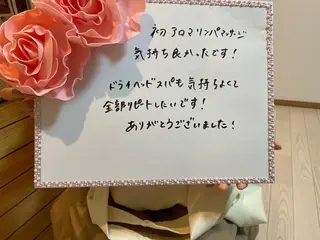 初アロマリンパマッサージ
気持ち良かったです！
ドライヘッドスパも気持ちよくて
全部リピートしたいです！
ありがとうございました！